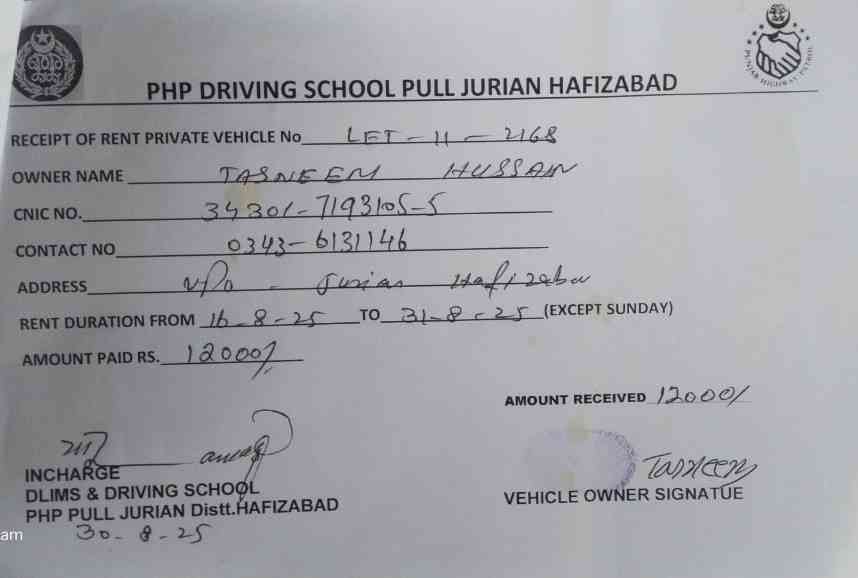 PUNJAB HIGHWAY PATROL
PHP DRIVING SCHOOL PULL JURIAN HAFIZABAD
RECEIPT OF RENT PRIVATE VEHICLE No LET-11-2168
OWNER NAME TASNEEM HUSSAIN
CNIC NO. 34301-7193105-5
CONTACT NO 0343-6131146
ADDRESS VPO - Jurian Hafizabad
RENT DURATION FROM 16-8-25 TO 31-8-25 (EXCEPT SUNDAY)
AMOUNT PAID RS. 12000/
AMOUNT RECEIVED 12000/
INCHARGE
DLIMS & DRIVING SCHOOL
PHP PULL JURIAN Distt.HAFIZABAD
30-8-25
Tasneem
VEHICLE OWNER SIGNATUE
am